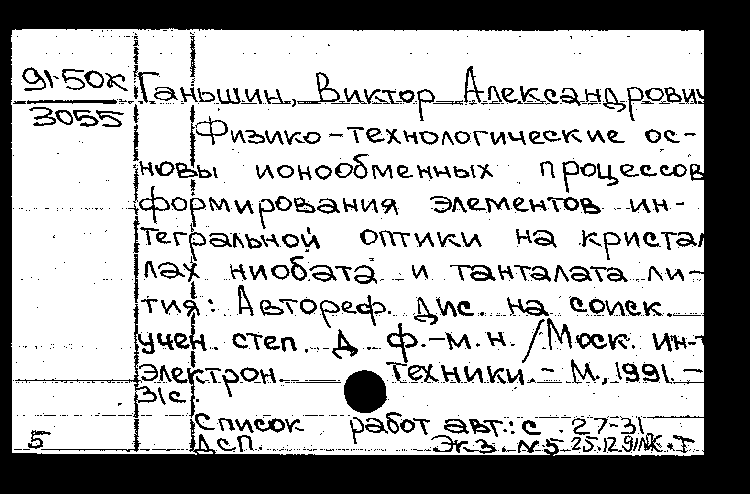 91-50к
3055
Ганьшин, Виктор Александрович
Физико-технологические ос-
новы ионообменных процессов
формирования элементов ин-
тегральной оптики на кристал
лах ниобата и танталата ли-
тия: Автореф. дис. на соиск.
учен. степ. д. ф.-м.н. /Моск. ин-т
электрон. техники. - М., 1991. -
31с.
Список работ авт.: с. 27-31
5 ДСП. Экз. №5 25.12.91